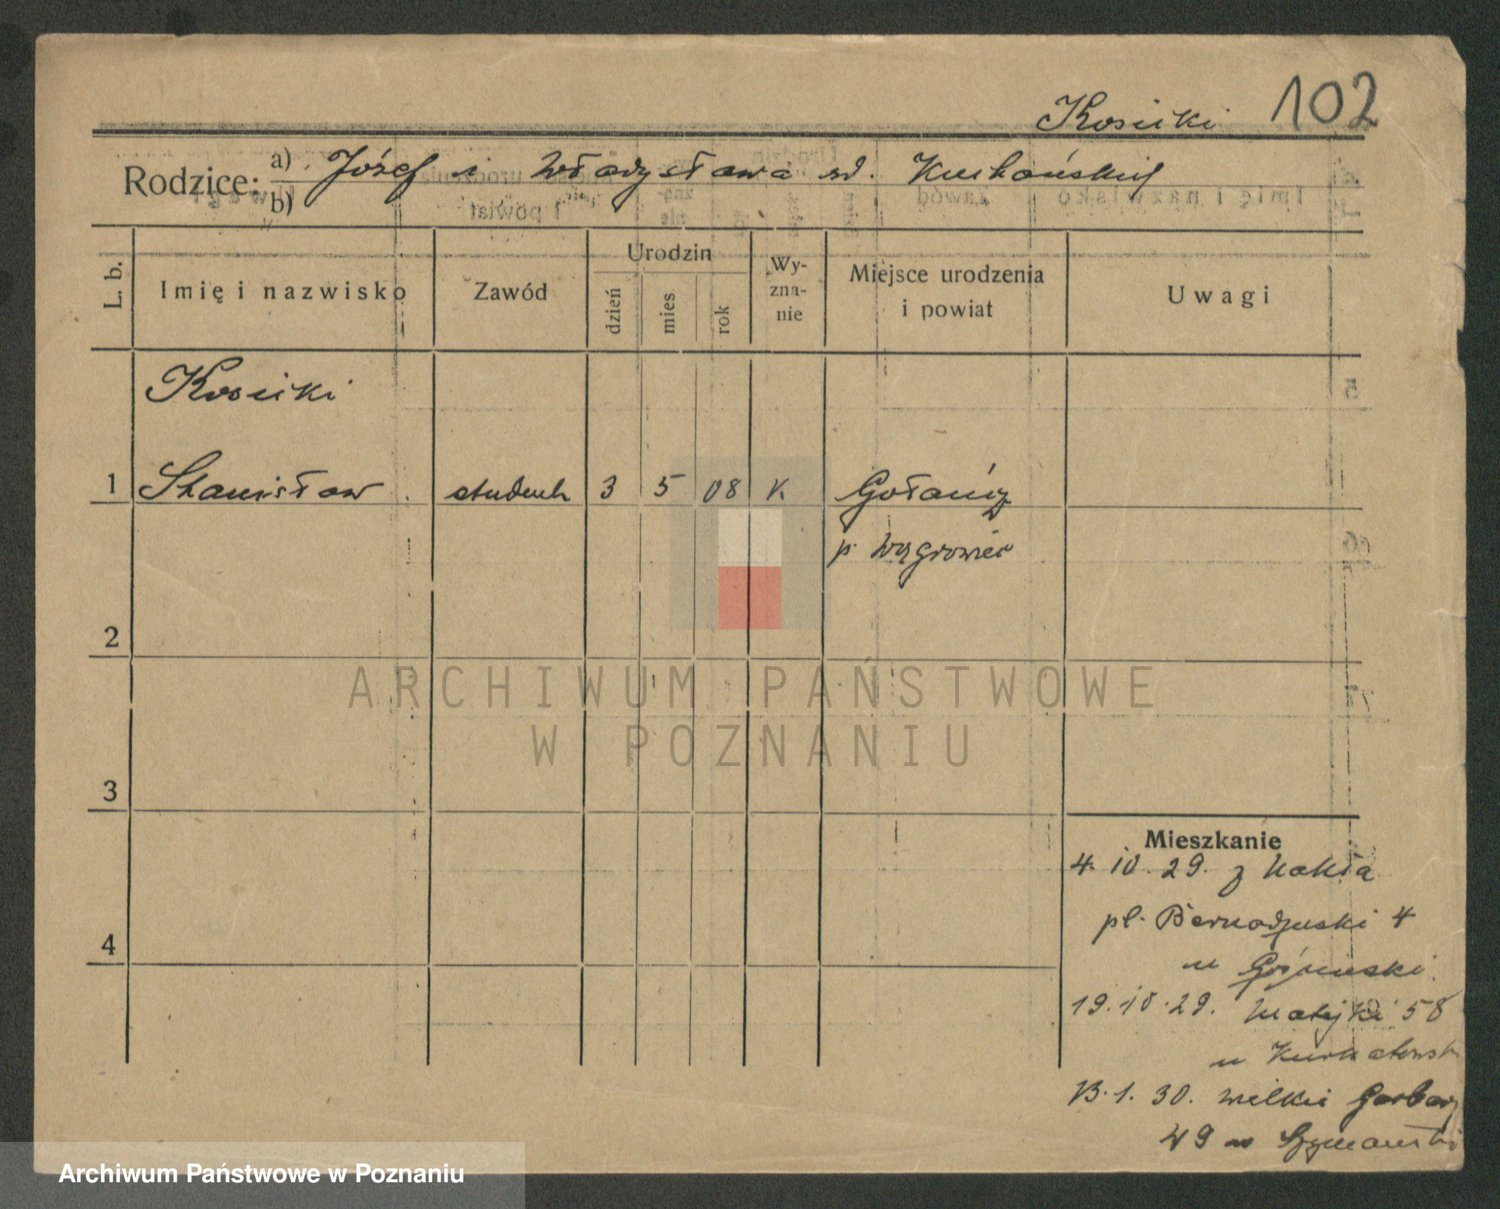 Kosicki 102
Rodzice: a) Józef i Władysława zd. Kuchańskich
b)
L. b. Imię i nazwisko Zawód Urodzin dzień mies rok Wy-zna-nie Miejsce urodzenia i powiat Uwagi
Kosicki
1 Stanisław student 3 5 08 K Gołańcz
p. Wągrowiec
2
ARCHIWUM PAŃSTWOWE
W POZNANIU
3
Mieszkanie
4. 10. 29. z Nakła
pl. Bernardyński 4
4
u
19. 10. 29. Matejki 58
u
13. 1. 30. Wielkie Garbary
49 u Szymański
Archiwum Państwowe w Poznaniu